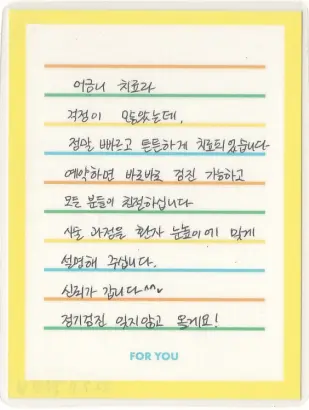 어금니 치료라
걱정이 많았는데,
정말 빠르고 튼튼하게 치료되었습니다
예약하면 바로바로 검진 가능하고
모든 분들이 친절하십니다
시술 과정을 환자 눈높이에 맞게
설명해 주십니다.
신뢰가 갑니다^^
정기검진 잊지않고 올게요!
FOR YOU